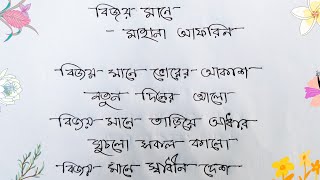 বিজয় মানে
- মাহানা আফরিন
বিজয় মানে ভোরের আকাশ
নতুন দিনের আলো
বিজয় মানে তাড়িয়ে আধার
ঘুচলো সকল কালো
বিজয় মানে স্বাধীন দেশ